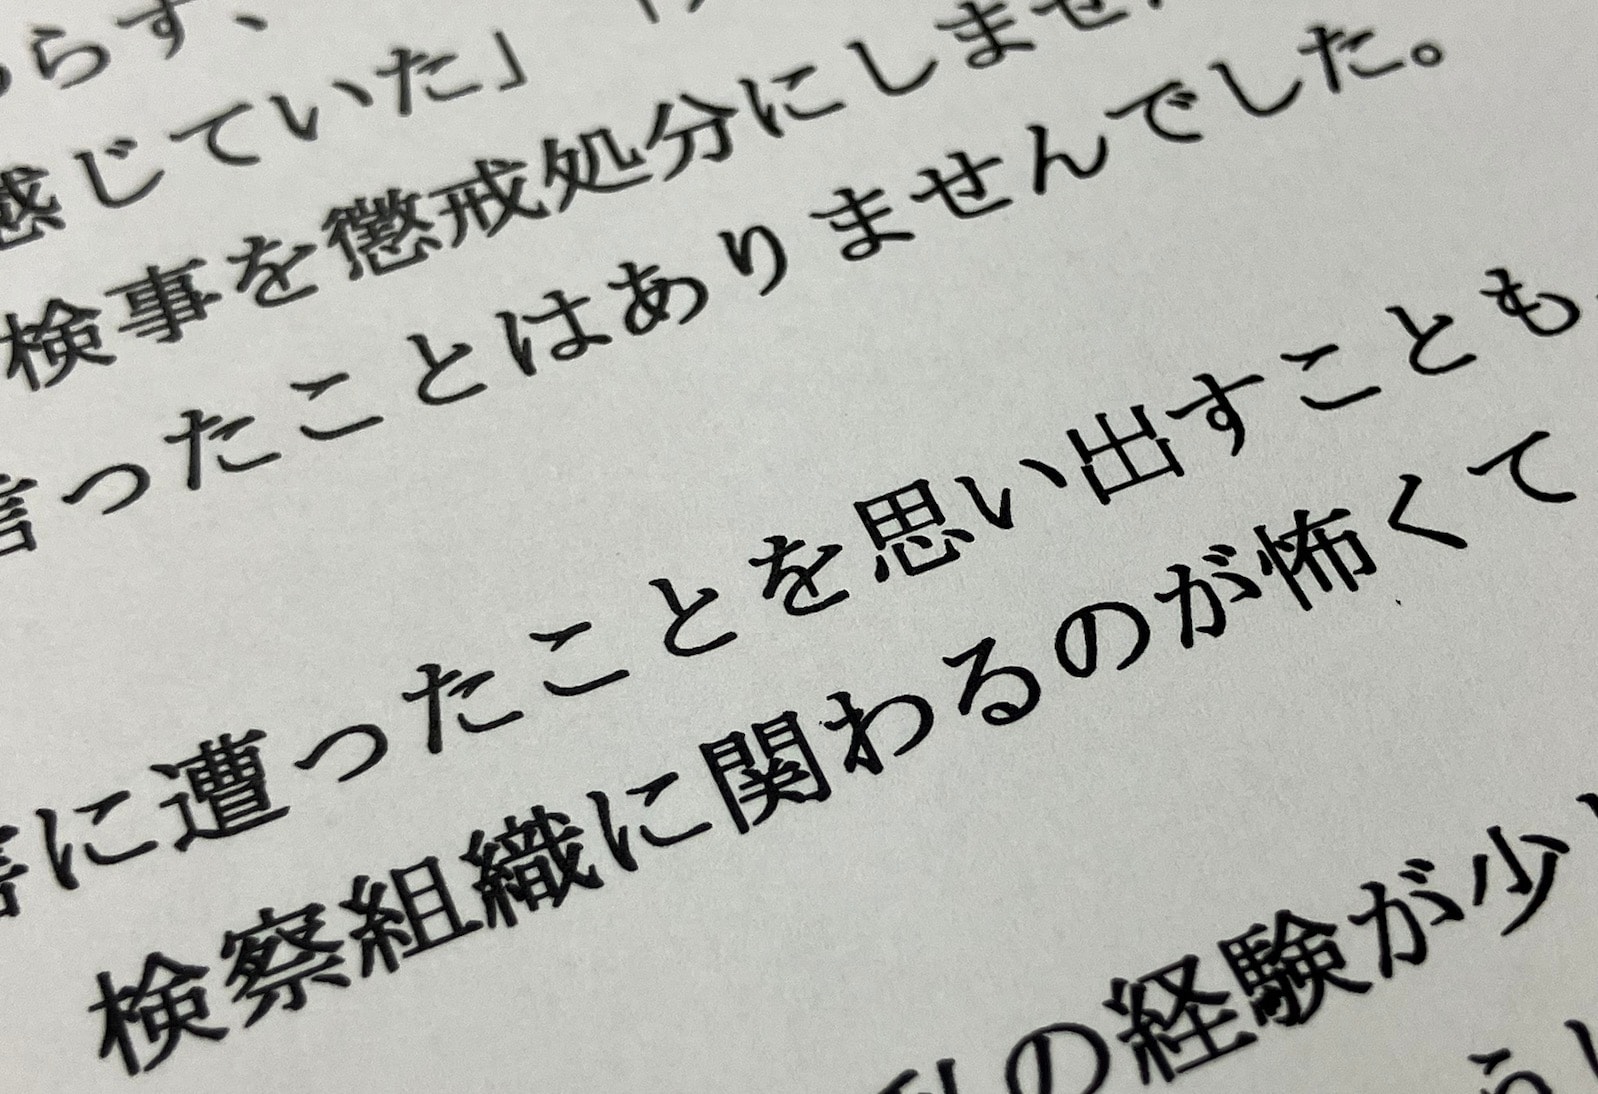 らず、
感じていた」
検事を懲戒処分にしませ
言ったことはありませんでした。
害に遭ったことを思い出すことも
検察組織に関わるのが怖くて
私の経験が少し